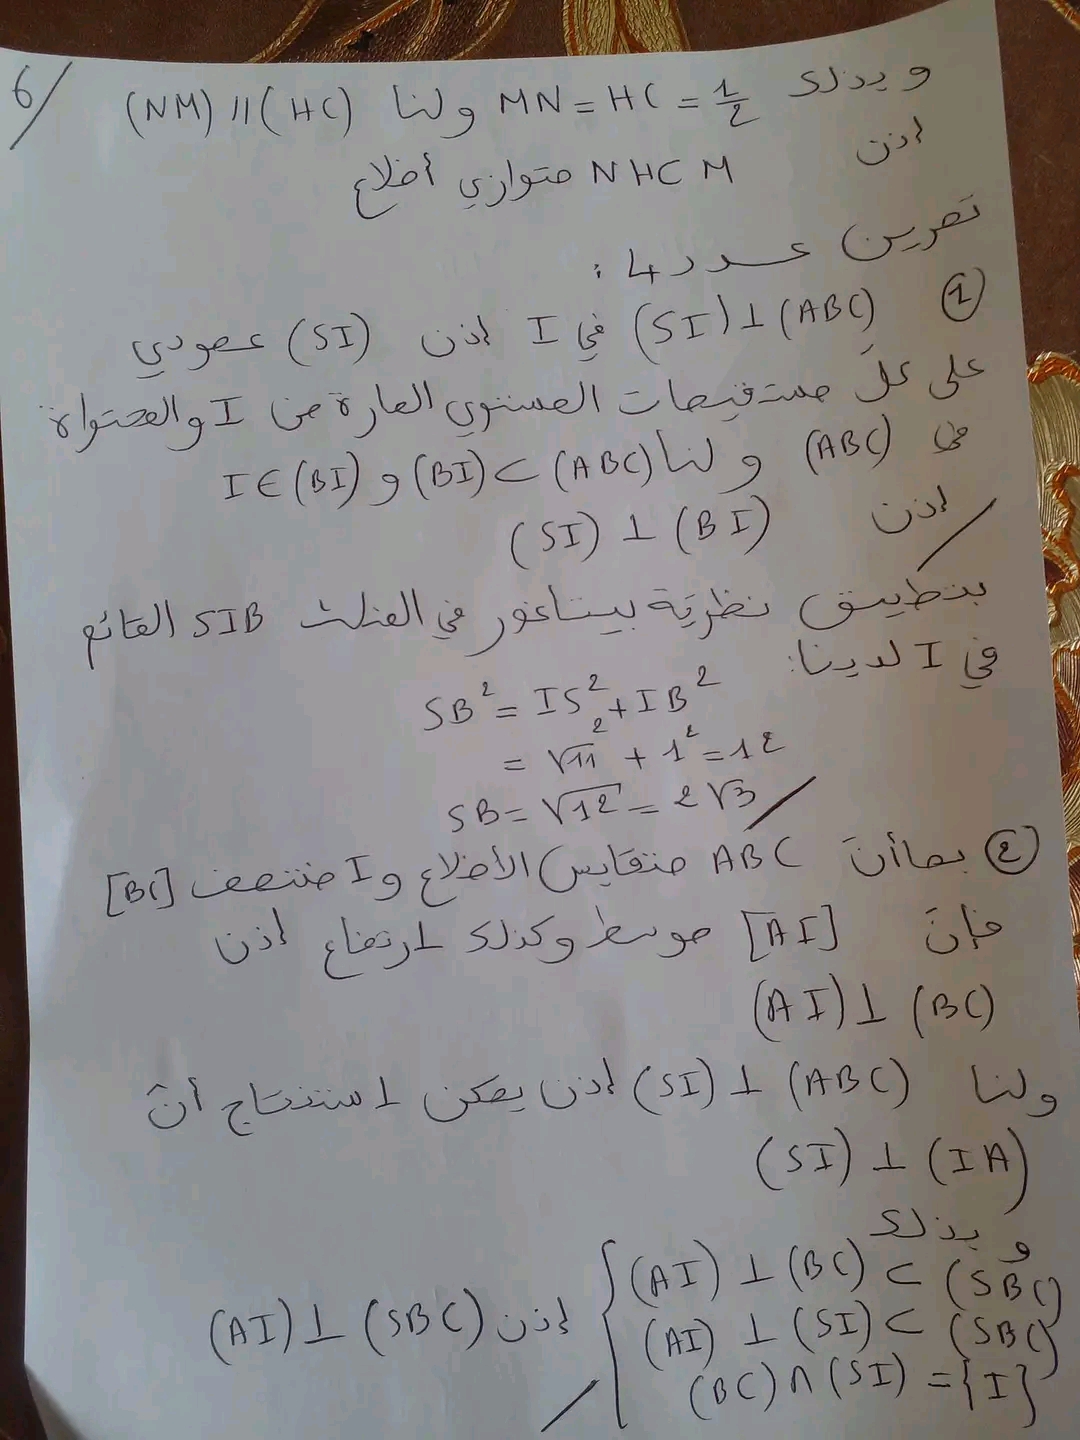 6/
وبذلك MN = HC = 1/2 ولنا (NM) // (HC)
إذن NHCM متوازي أضلاع
تمرين عدد 4 :
① (SI) ⊥ (ABC) في I إذن (SI) عمودي
على كلّ مستقيمات المستوي المارة من I والمحتواة
في (ABC) ولنا (BI) ⊂ (ABC) و I ∈ (BI)
إذن (SI) ⊥ (BI)
بتطبيق نظرية بيتاغور في المثلث SIB القائم
في I لدينا:
SB² = IS² + IB²
= √11² + 1² = 12
SB = √12 = 2√3
② بما أنّ ABC متقايس الأضلاع و I منتصف [BC]
فإنّ [AI] موسط وكذلك ارتفاع إذن
(AI) ⊥ (BC)
ولنا (SI) ⊥ (ABC) إذن يمكن استنتاج أنّ
(SI) ⊥ (IA)
وبذلك
(AI) ⊥ (BC) ⊂ (SBC)
(AI) ⊥ (SI) ⊂ (SBC) إذن (AI) ⊥ (SBC)
(BC) ∩ (SI) = {I}